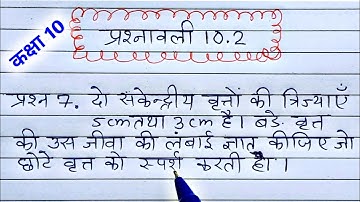 कक्षा 10
प्रश्नावली 10.2
प्रश्न 7. दो संकेन्द्रीय वृत्तों की त्रिज्याएँ
5cm तथा 3cm है। बडे वृत्त
की उस जीवा की लंबाई ज्ञात कीजिए जो
छोटे वृत्त को स्पर्श करती हो।